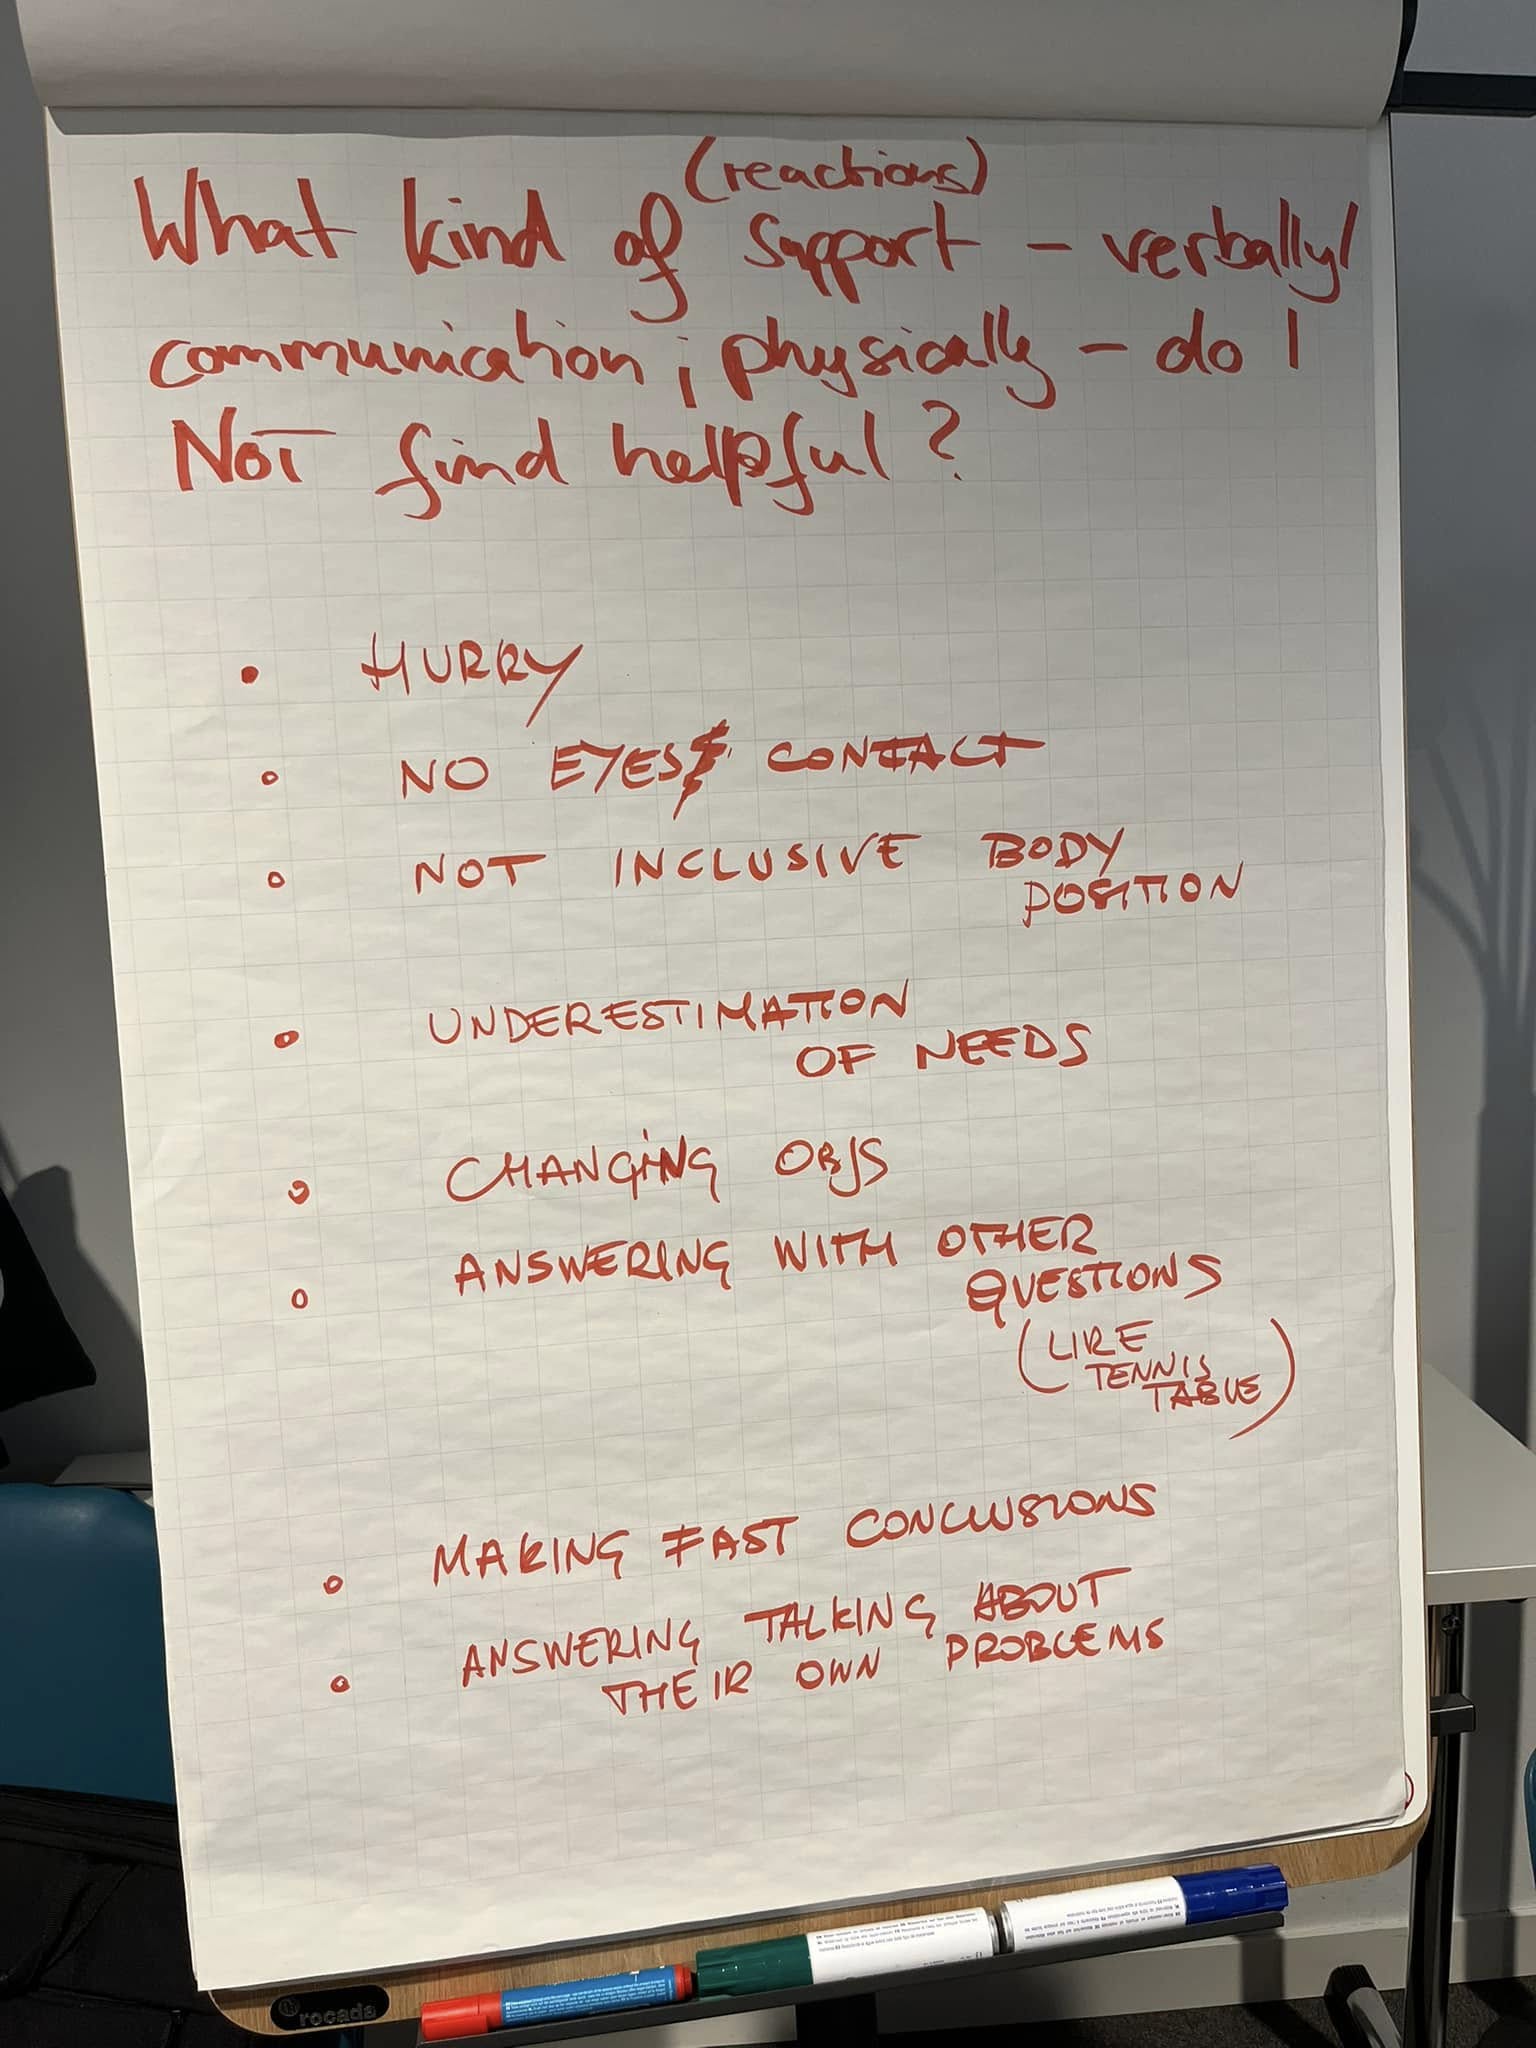 (reactions)
What kind of support - verbally/
communication; physically - do I
NOT find helpful?
• HURRY
• NO EYES CONTACT
• NOT INCLUSIVE BODY
POSITION
• UNDERESTIMATION
OF NEEDS
• CHANGING OBJS
• ANSWERING WITH OTHER
QUESTIONS
(LIKE
TENNIS
TABLE)
• MAKING FAST CONCLUSIONS
• ANSWERING TALKING ABOUT
THEIR OWN PROBLEMS
rocada